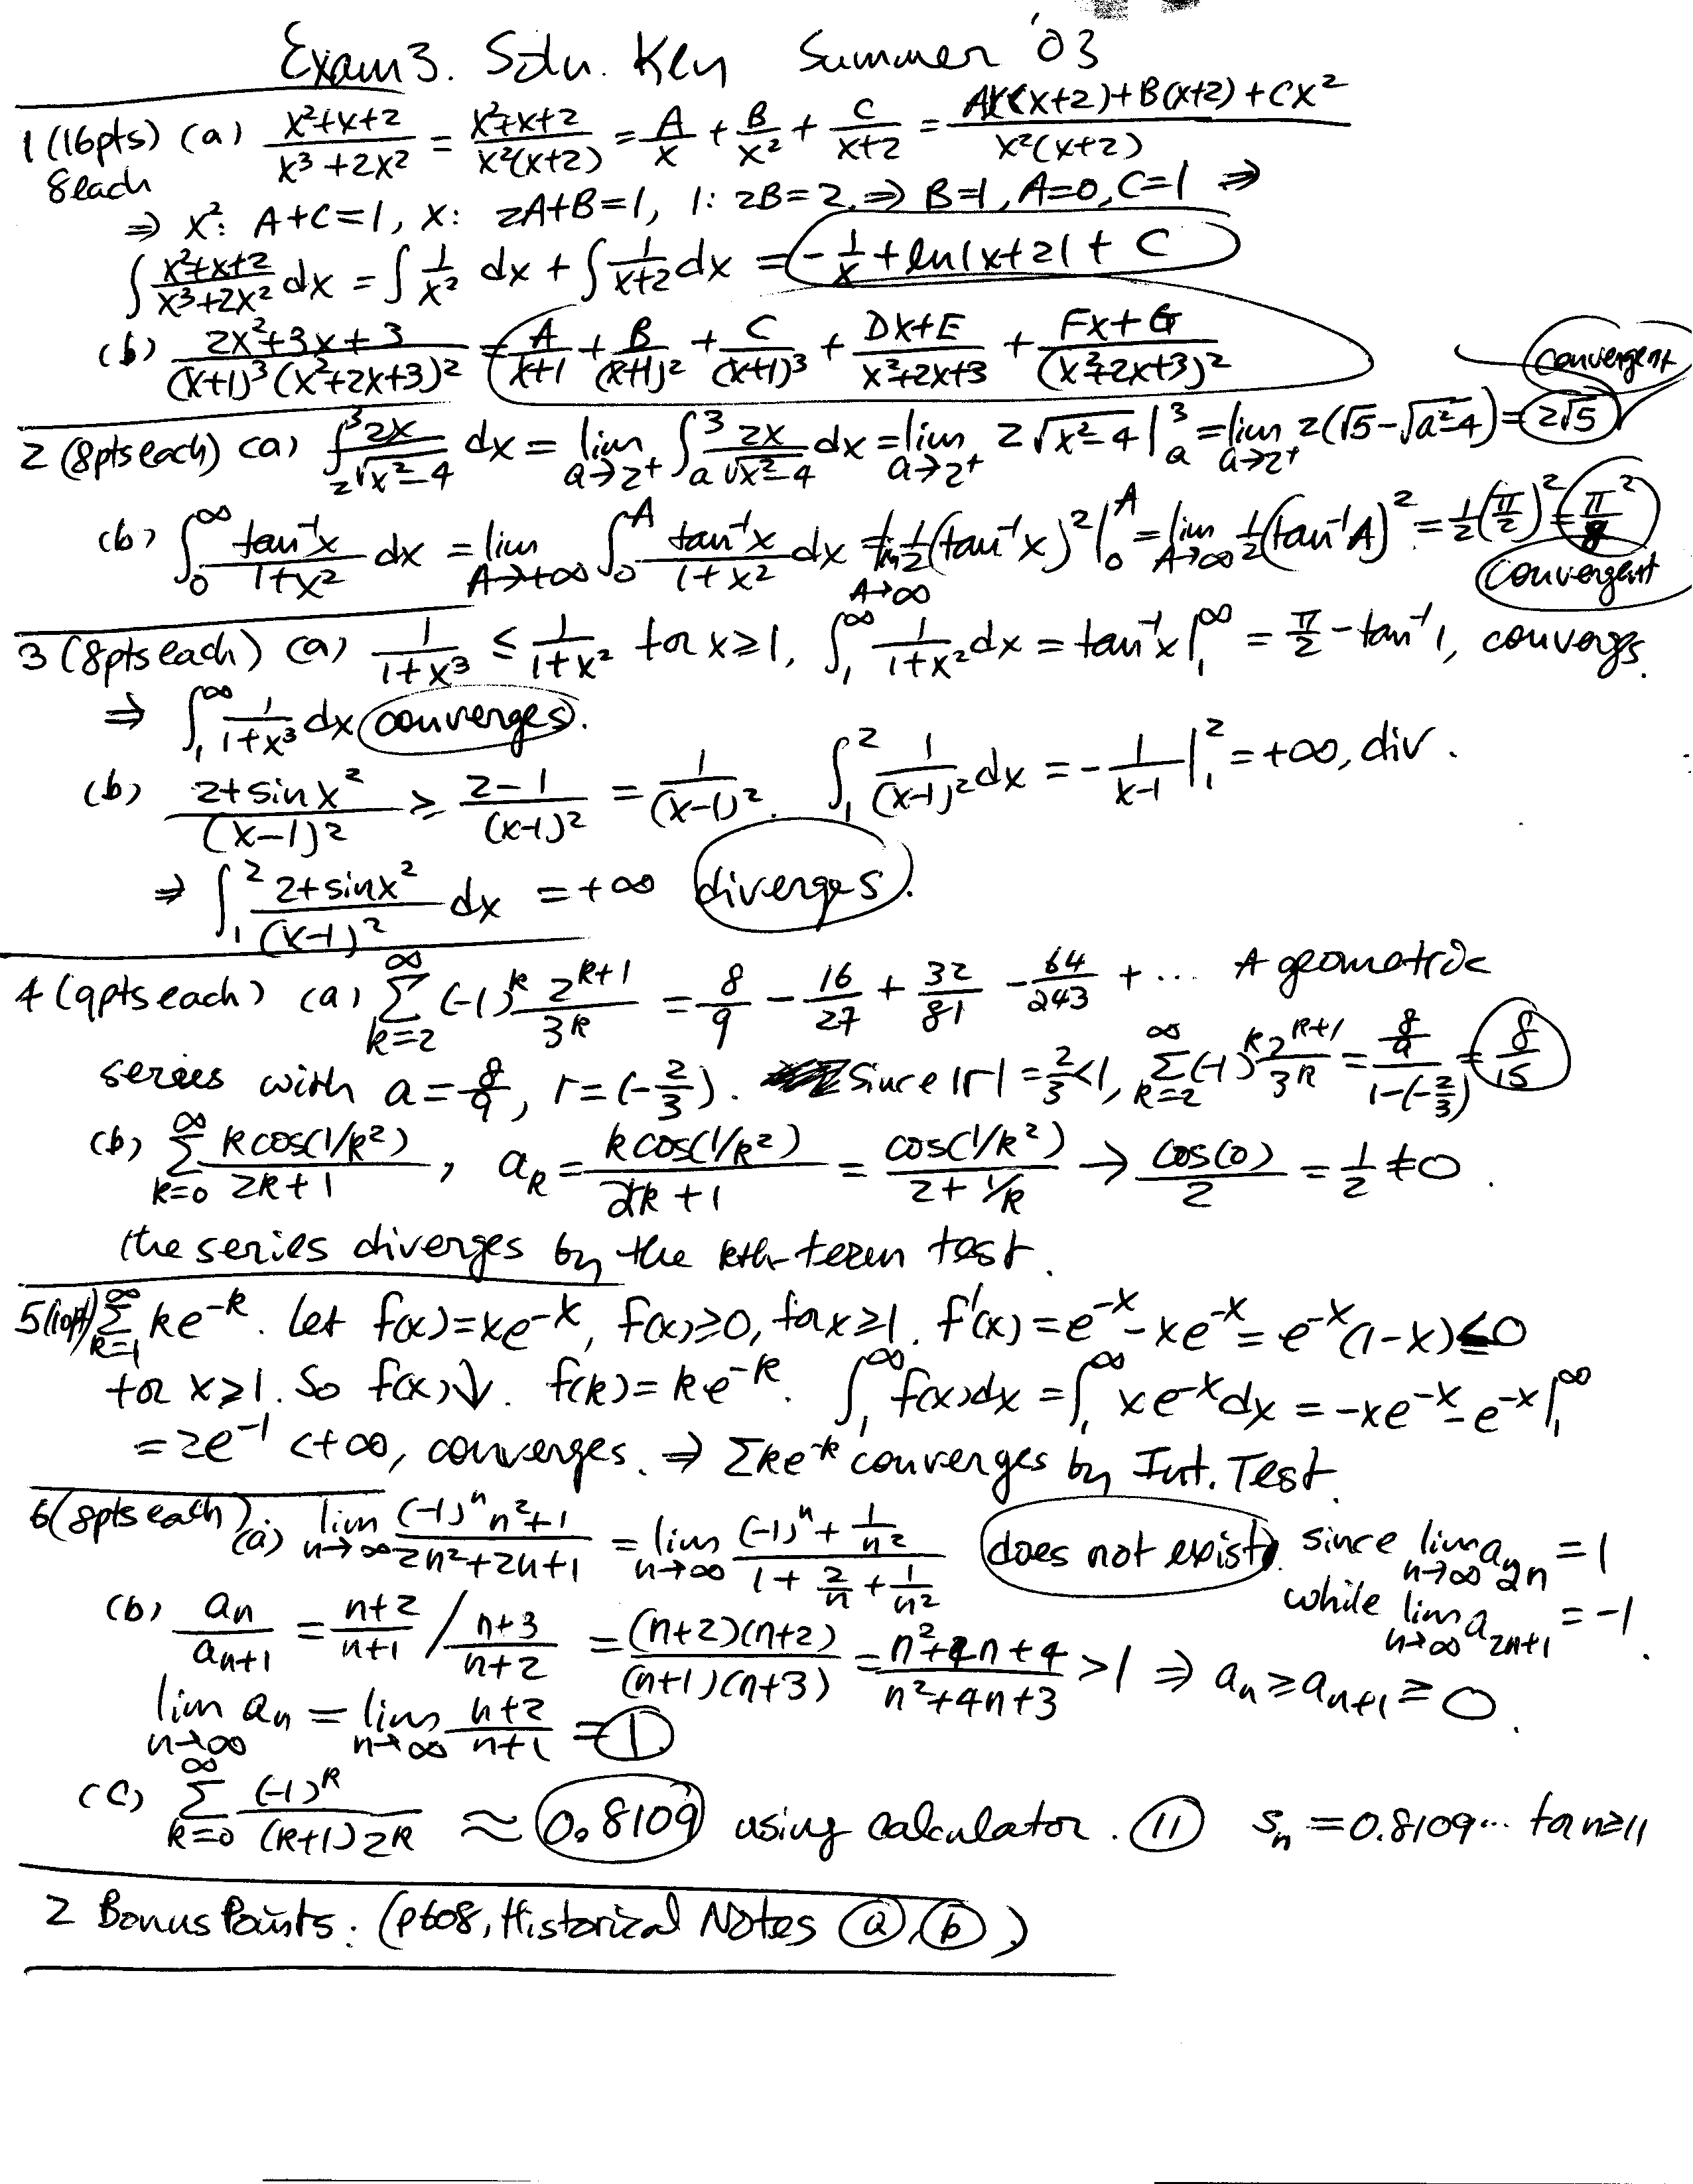 Exam 3. Soln. Key Summer '03
1 (16pts) (a) (x²+x+2)/(x³+2x²) = (x²+x+2)/(x²(x+2)) = A/x + B/x² + C/(x+2) = (Ax(x+2)+B(x+2)+Cx²)/(x²(x+2))
8 each
⇒ x²: A+C=1, x: 2A+B=1, 1: 2B=2. ⇒ B=1, A=0, C=1 ⇒
∫ (x²+x+2)/(x³+2x²) dx = ∫ 1/x² dx + ∫ 1/(x+2) dx = -1/x + ln|x+2| + C
(b) (2x²+3x+3)/((x+1)³(x²+2x+3)²) = A/(x+1) + B/(x+1)² + C/(x+1)³ + (Dx+E)/(x²+2x+3) + (Fx+G)/(x²+2x+3)²
convergent
2 (8pts each) (a) ∫₂³ 2x/√(x²-4) dx = lim a→2⁺ ∫ₐ³ 2x/√(x²-4) dx = lim a→2⁺ 2√(x²-4) |ₐ³ = lim a→2⁺ 2(√5-√(a²-4)) = 2√5
(b) ∫₀^∞ tan⁻¹x/(1+x²) dx = lim A→+∞ ∫₀^A tan⁻¹x/(1+x²) dx = lim A→∞ 1/2 (tan⁻¹x)² |₀^A = lim A→∞ 1/2 (tan⁻¹A)² = 1/2 (π/2)² = π²/8
convergent
3 (8pts each) (a) 1/(1+x³) ≤ 1/(1+x²) for x≥1, ∫₁^∞ 1/(1+x²) dx = tan⁻¹x |₁^∞ = π/2 - tan⁻¹1, convergs.
⇒ ∫₁^∞ 1/(1+x³) dx converges.
(b) (2+sinx²)/(x-1)² ≥ (2-1)/(x-1)² = 1/(x-1)². ∫₁² 1/(x-1)² dx = -1/(x-1) |₁² = +∞, div.
⇒ ∫₁² (2+sinx²)/(x-1)² dx = +∞ diverges.
4 (9pts each) (a) Σ_{k=2}^∞ (-1)^k 2^{k+1}/3^k = 8/9 - 16/27 + 32/81 - 64/243 + ... A geometric
series with a = 8/9, r = (-2/3). Since |r| = 2/3 < 1, Σ_{k=2}^∞ (-1)^k 2^{k+1}/3^k = (8/9)/(1-(-2/3)) = 8/15
(b) Σ_{k=0}^∞ k cos(1/k²)/(2k+1), a_k = k cos(1/k²)/(2k+1) = cos(1/k²)/(2+1/k) → cos(0)/2 = 1/2 ≠ 0.
the series diverges by the kth-term test.
5 (10pt) Σ_{k=1}^∞ ke^{-k}. Let f(x)=xe^{-x}, f(x)≥0, for x≥1. f'(x)=e^{-x}-xe^{-x}=e^{-x}(1-x)≤0
for x≥1. So f(x)↓. f(k)=ke^{-k}. ∫₁^∞ f(x)dx = ∫₁^∞ xe^{-x}dx = -xe^{-x}-e^{-x} |₁^∞
= 2e⁻¹ <+∞, converges. ⇒ Σke^{-k} converges by Int. Test.
6 (8pts each). (a) lim n→∞ ((-1)ⁿn²+1)/(2n²+2n+1) = lim n→∞ ((-1)ⁿ+1/n²)/(1+2/n+1/n²) does not exist. since lim n→∞ a_{2n} = 1
while lim n→∞ a_{2n+1} = -1.
(b) a_n/a_{n+1} = (n+2)/(n+1) / (n+3)/(n+2) = (n+2)(n+2)/((n+1)(n+3)) = (n²+4n+4)/(n²+4n+3) > 1 ⇒ a_n ≥ a_{n+1} ≥ 0.
lim n→∞ a_n = lim n→∞ (n+2)/(n+1) = 1
(c) Σ_{k=0}^∞ (-1)^k/((k+1)2^k) ≈ 0.8109 using calculator. 11 s_n = 0.8109... for n≥11
2 Bonus Points. (p608, Historical Notes a, b)